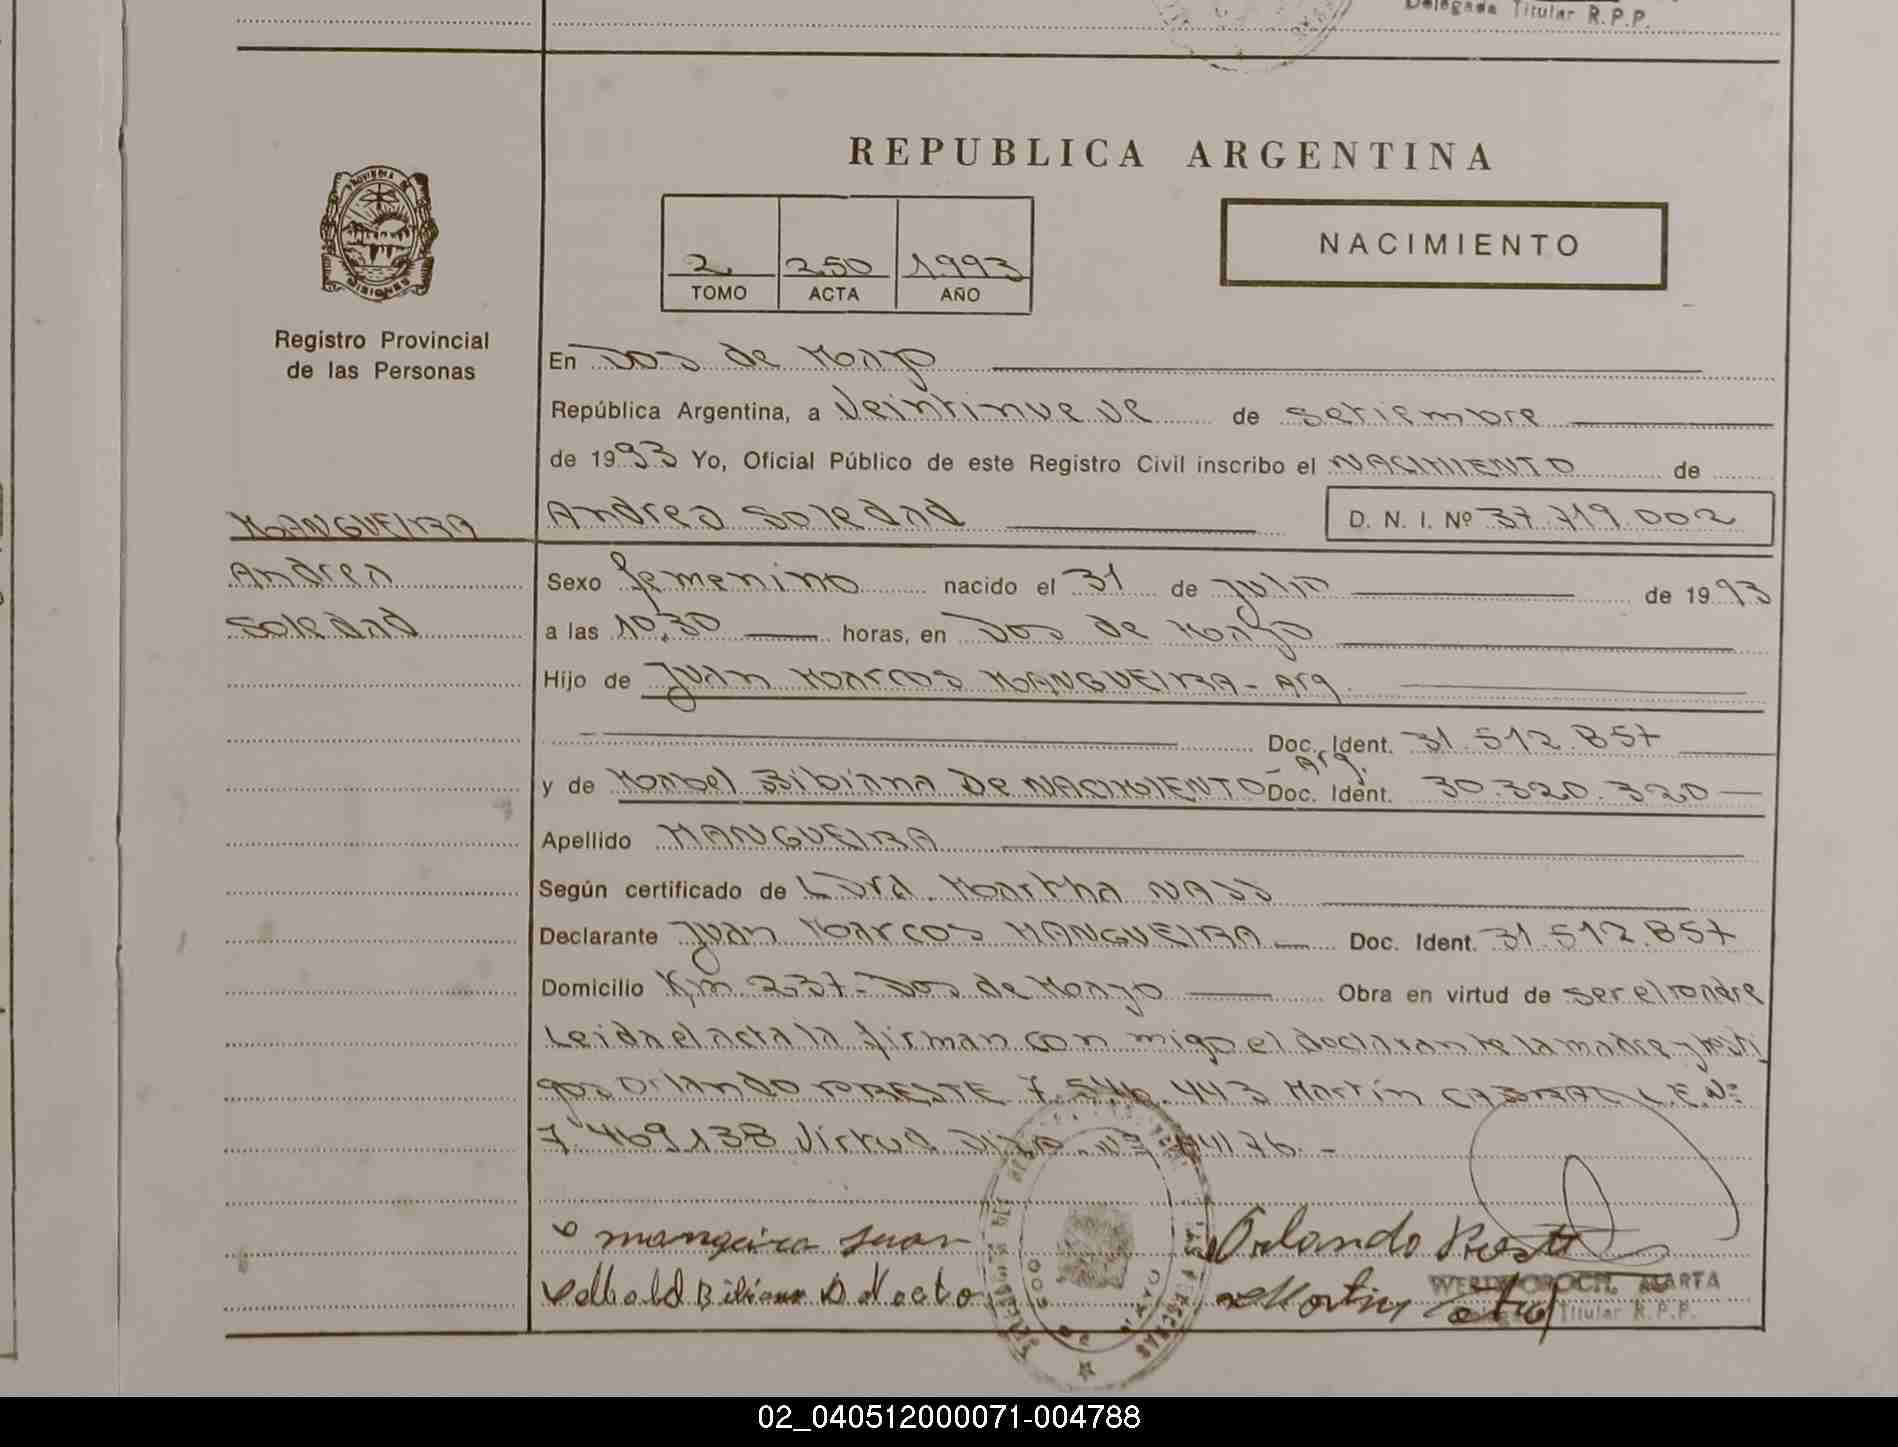 Delegada Titular R.P.P.
REPUBLICA ARGENTINA
PROVINCIA DE
MISIONES
2 250 1993
TOMO ACTA AÑO
NACIMIENTO
Registro Provincial
de las Personas
En Dos de Mayo
República Argentina, a Veintinueve de setiembre
de 1993 Yo, Oficial Público de este Registro Civil inscribo el NACIMIENTO de
MANGUEIRA
Andrea Soledad D. N. I. Nº 37.719.002
Andrea
Sexo femenino nacido el 31 de Julio de 1993
Soledad
a las 10,30 horas, en Dos de Mayo
Hijo de Juan Marcos MANGUEIRA - Arg.
Doc. Ident. 31.512.857
- Arg.
y de Mabel Bibiana De NACIMIENTO Doc. Ident. 30.320.320
Apellido MANGUEIRA
Según certificado de Dra. Martha NASS
Declarante Juan Marcos MANGUEIRA Doc. Ident. 31.512.857
Domicilio Km 237 - Dos de Mayo Obra en virtud de ser el padre
Leida el acta la firman con migo el declarante la madre y testi
gos Orlando PRESTE 7.546.443 Martín CABRAL L.E.Nº
7.469.138 Virtud Dizp. Nº 41176.-
mangeira Juan
Orlando Prest
Bibiana D
Martin
WERDWOROCH, MARTA
Titular R.P.P.
02_040512000071-004788